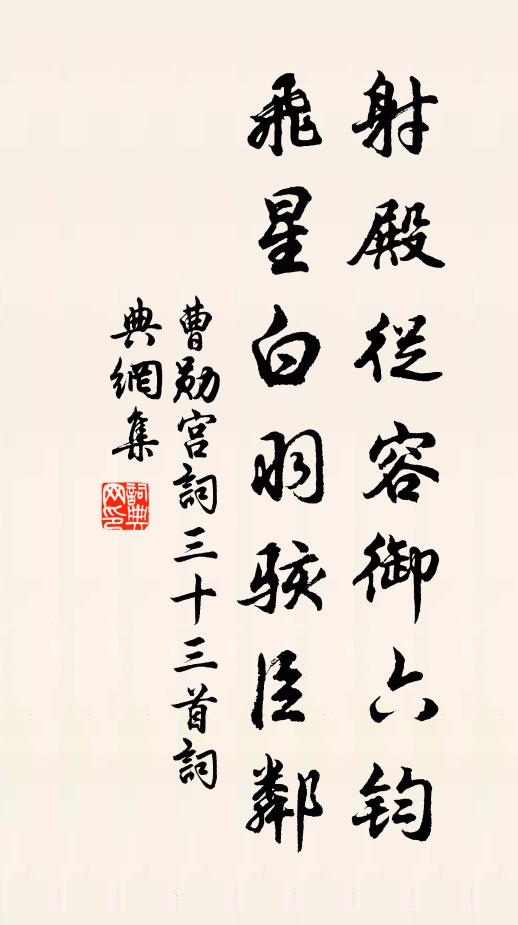 射殿從容御六鈞
飛星白羽駭臣鄰
曹勛宮詞三十三首詞
典網集
詞典網印